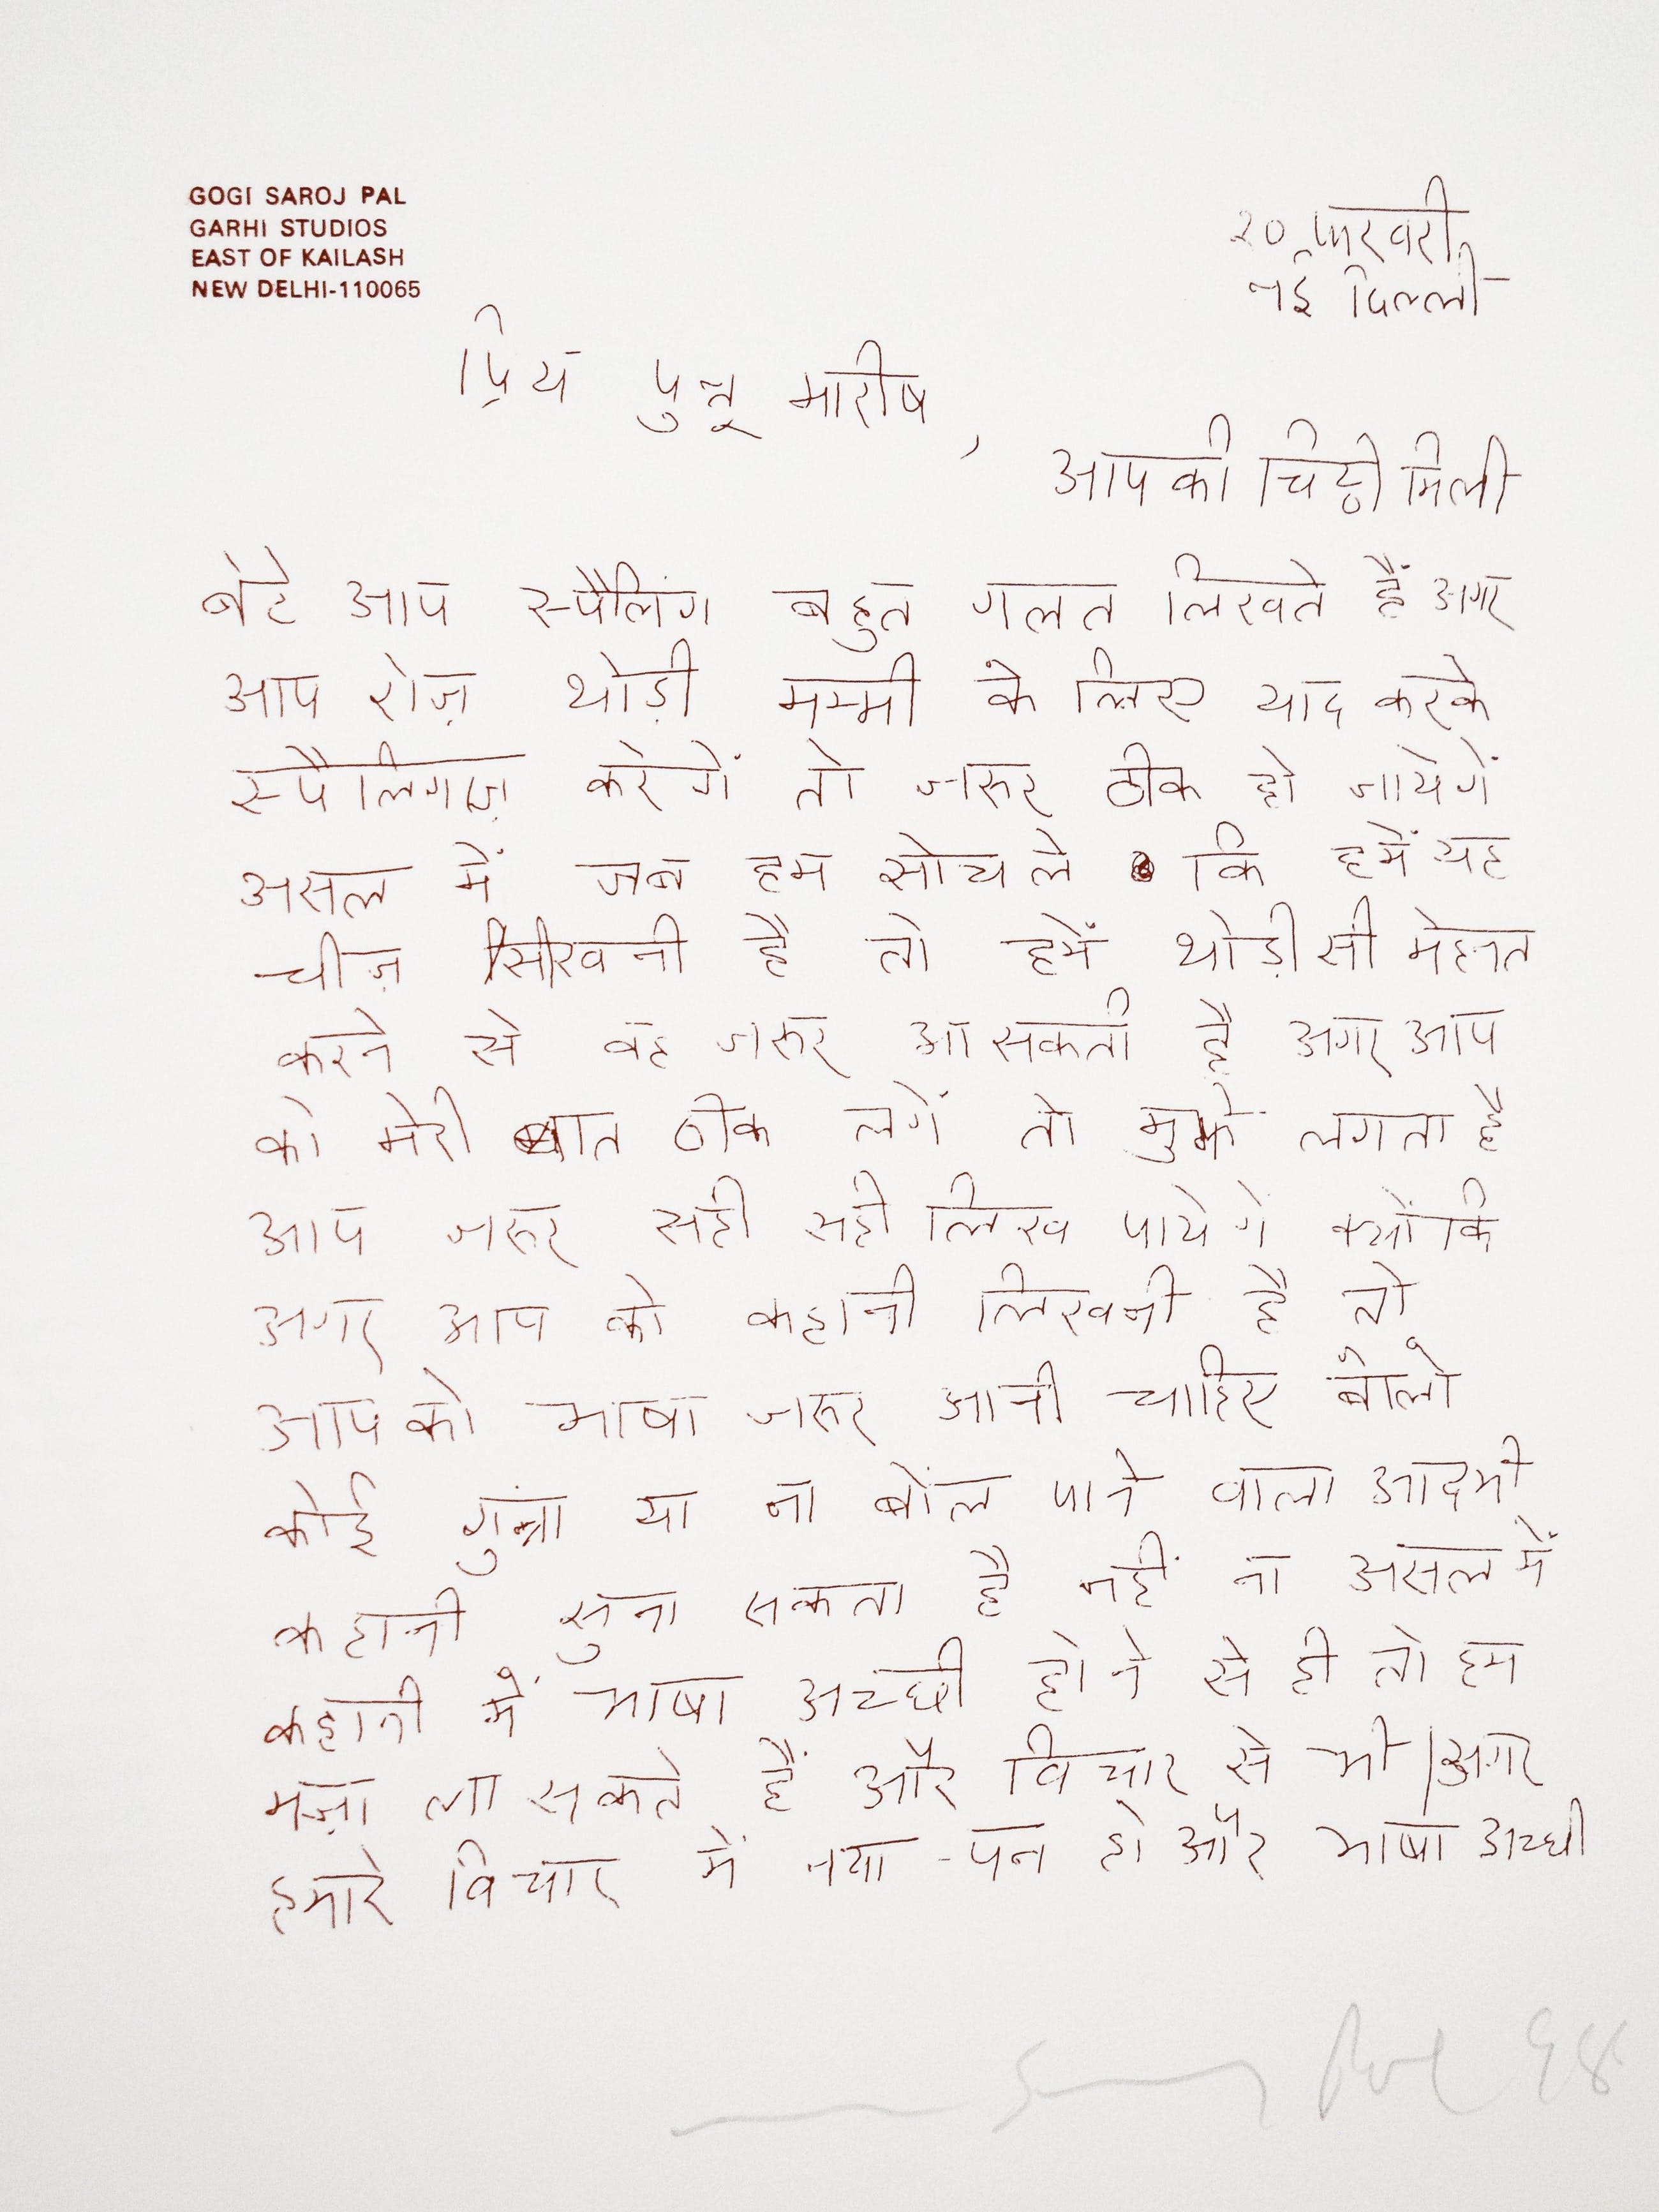 GOGI SAROJ PAL
GARHI STUDIOS
EAST OF KAILASH
NEW DELHI-110065
२० फरवरी,
नई दिल्ली
प्रिय पुन्नू मारीष,
आपकी चिट्ठी मिली
बेटे आप स्पैलिंग बहुत गलत लिखते हैं अगर
आप रोज़ थोड़ी मम्मी के लिए याद करके
स्पैलिगज़ करेगें तो जरुर ठीक हो जायेगें
असल में जब हम सोच ले कि हमें यह
चीज़ सिखनी है तो हमें थोड़ी सी मेहनत
करने से वह जरुर आ सकती है अगर आप
को मेरी बात ठीक लगें तो मुझे लगता है
आप जरुर सही सही लिख पायेगे क्योंकि
अगर आप को कहानी लिखनी है तो
आपको भाषा जरुर आनी चाहिए बोलो
कोई या ना बोल पाने वाला आदमी
कहानी सुना सकता है नहीं ना असल में
कहानी में भाषा अच्छी होने से ही तो हम
मज़ा ला सकते हैं और विचार से भी। अगर
हमारे विचार में नया-पन हो और भाषा अच्छी
Saroj Pal 98